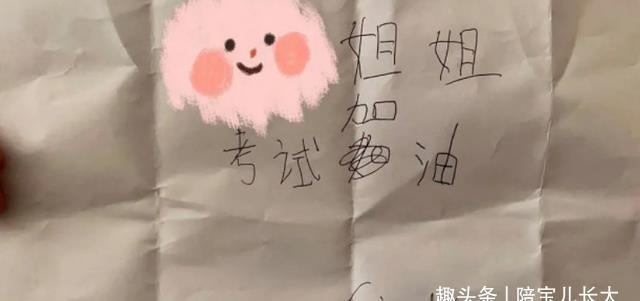 姐姐
考试加油
趣头条 | 陪宝儿长大